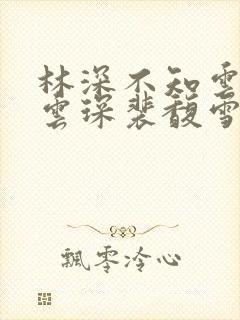 林深不知雲
雲琛裴馥雪
飄零冷心